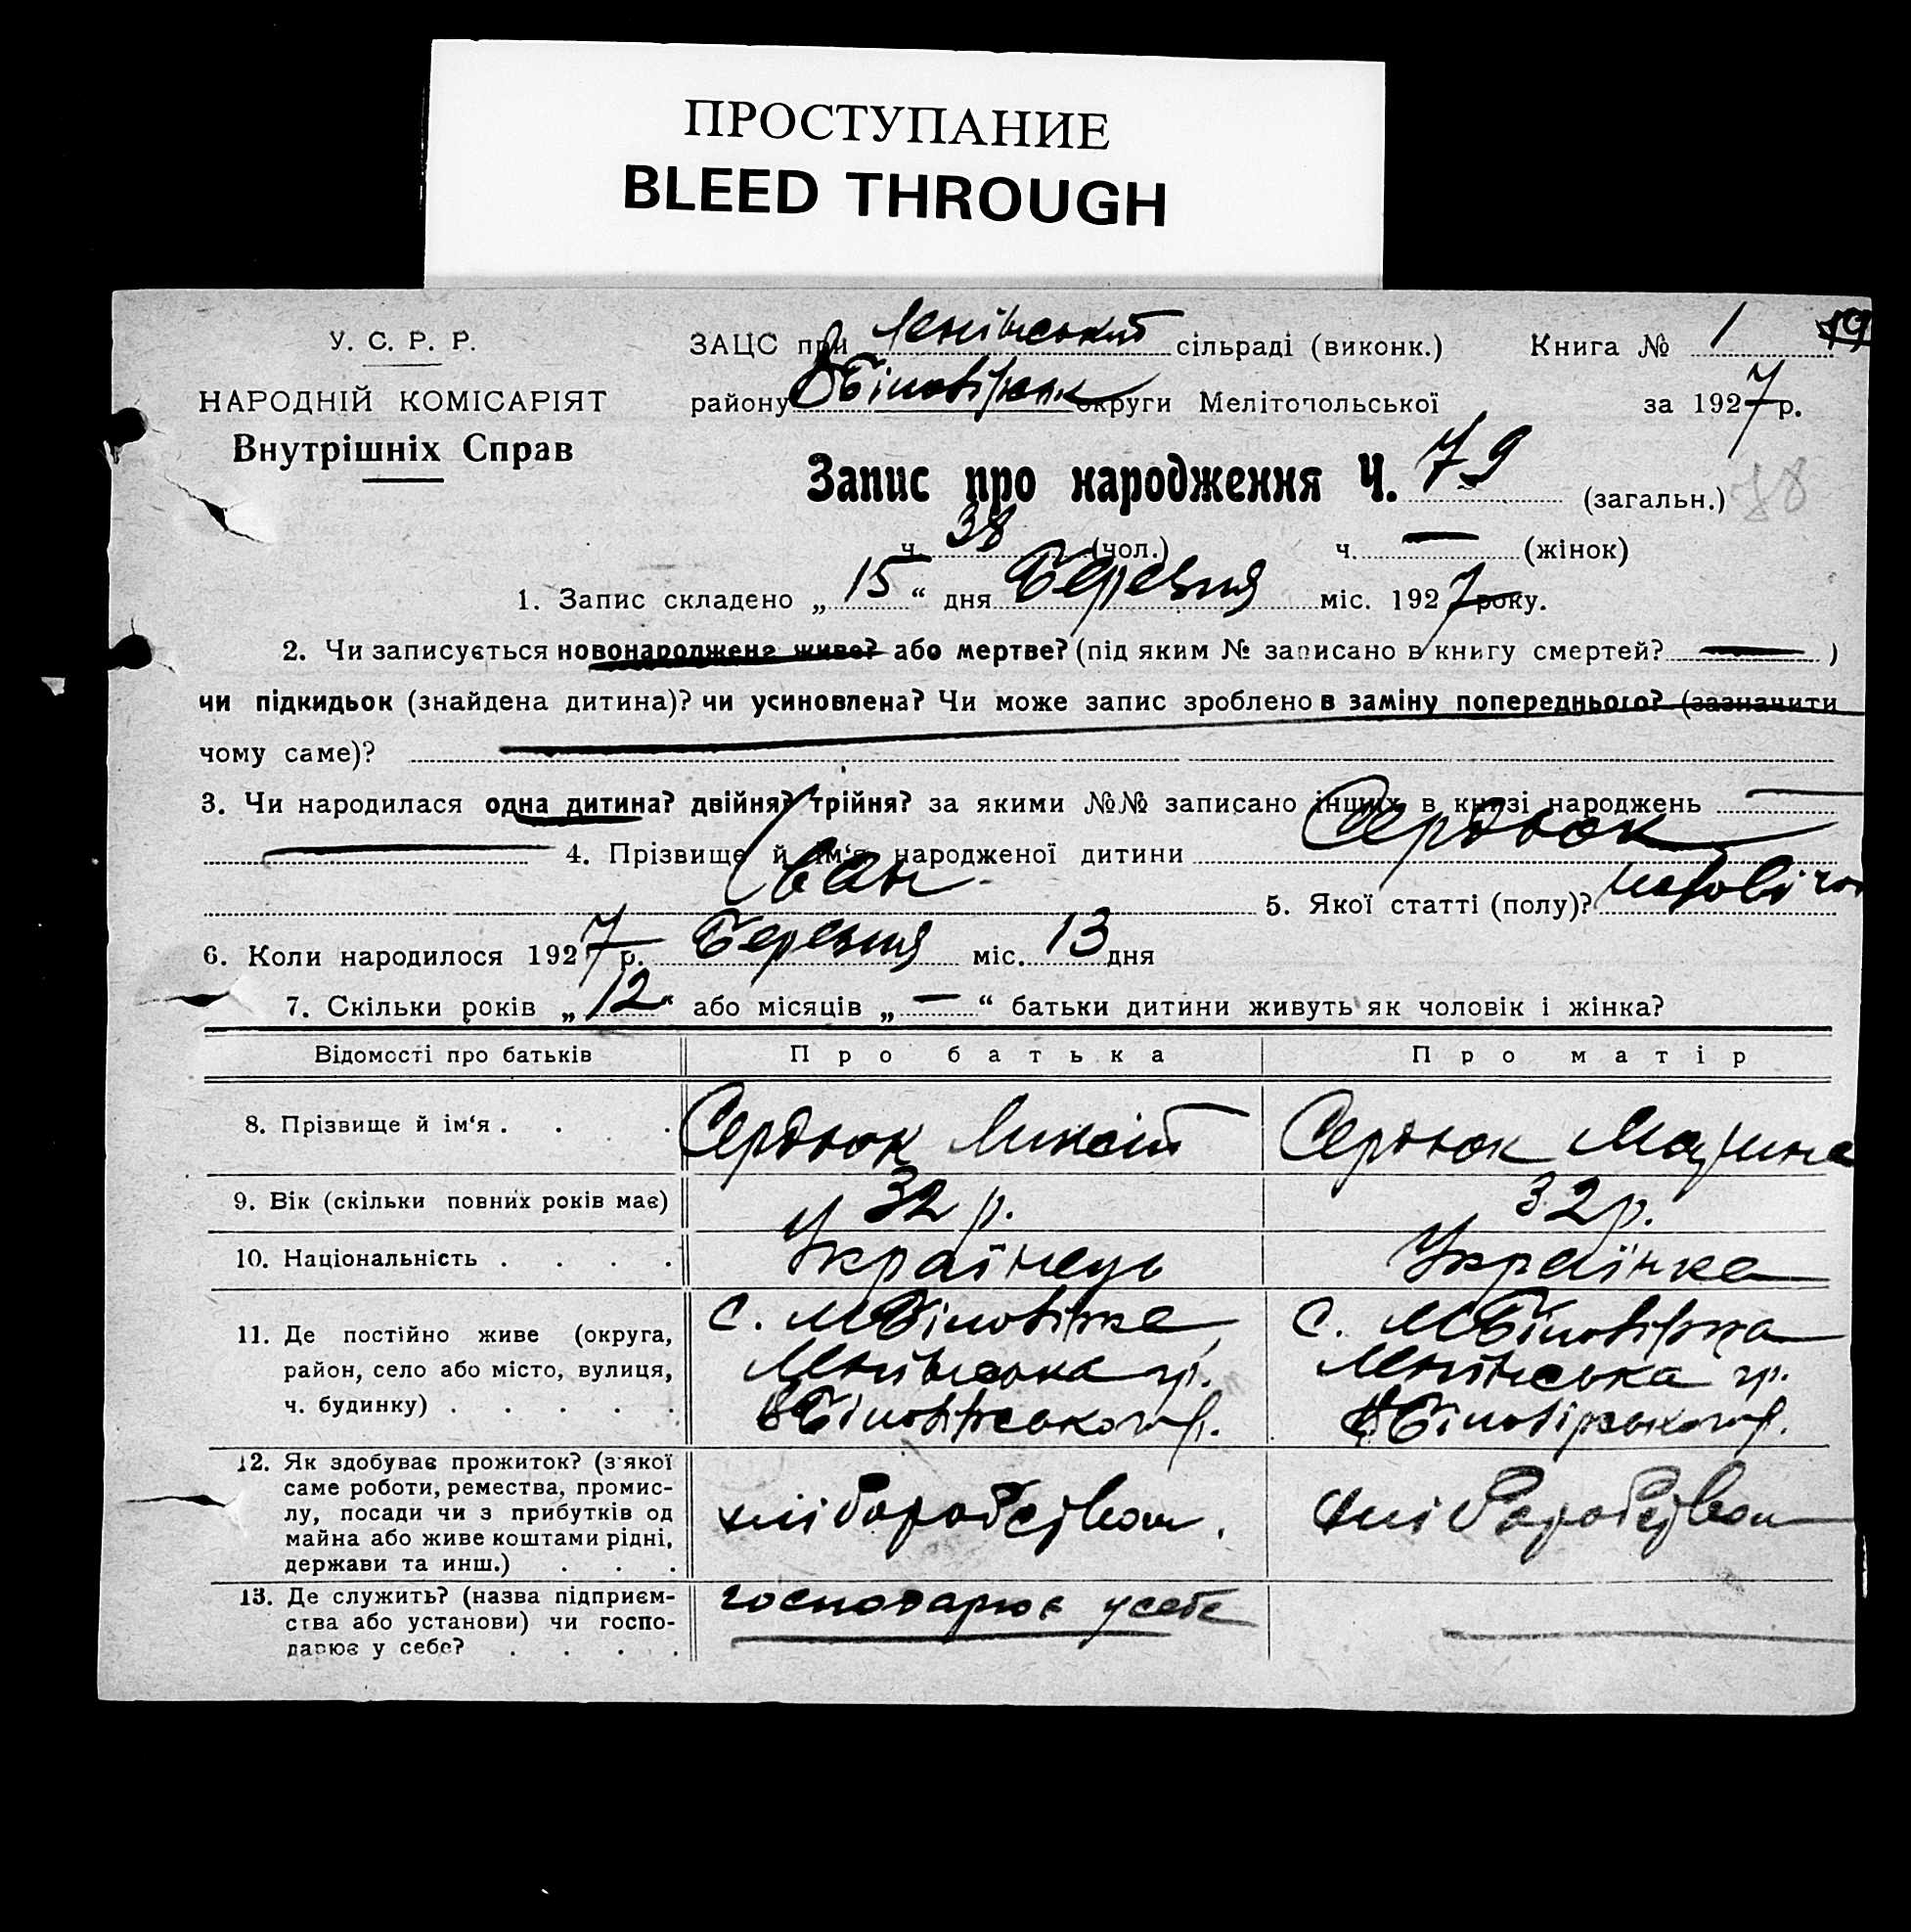 ПРОСТУПАНИЕ
BLEED THROUGH
У. С. Р. Р.
НАРОДНІЙ КОМІСАРІЯТ
Внутрішніх Справ
ЗАЦС при Ленівській сільраді (виконк.) Книга № 1
району округи Мелітопольської за 1927 р.
Запис про народження Ч. 79 (загальн.) 38
ч. 38 (чол.) ч. — (жінок)
1. Запис складено „ 15 “ дня Березня міс. 1927 року.
2. Чи записується новонароджене живе? або мертве? (під яким № записано в книгу смертей? — )
чи підкидьок (знайдена дитина)? чи усиновлена? Чи може запис зроблено в заміну попереднього? (зазначити
чому саме)?
3. Чи народилася одна дитина? двійня? трійня? за якими №№ записано інших в книзі народжень —
— 4. Прізвище й ім‘я народженої дитини Сердюк
Іван 5. Якої статті (полу)?
6. Коли народилося 1927 р. Березня міс. 13 дня
7. Скільки років „ 12 “ або місяців „ — “ батьки дитини живуть як чоловік і жінка?
Відомості про батьків Про батька Про матір
8. Прізвище й ім‘я . . . . Сердюк Микит Сердюк Марина
9. Вік (скільки повних років має) 32 р. 32 р.
10. Національність . . . . Українець Українка
11. Де постійно живе (округа, с. МБілозірка с. МБілозірка
район, село або місто, вулиця, Ленінська гр. Ленінська гр.
ч. будинку) . . . . . ВБілозірського р. ВБілозірського р.
12. Як здобуває прожиток? (з якої
саме роботи, ремества, промис-
лу, посади чи з прибутків од хліборобством. хліборобством
майна або живе коштами рідні,
держави та инш.) . . .
13. Де служить? (назва підприєм- господарює у себе
ства або установи) чи госпо-
дарює у себе? . . . .